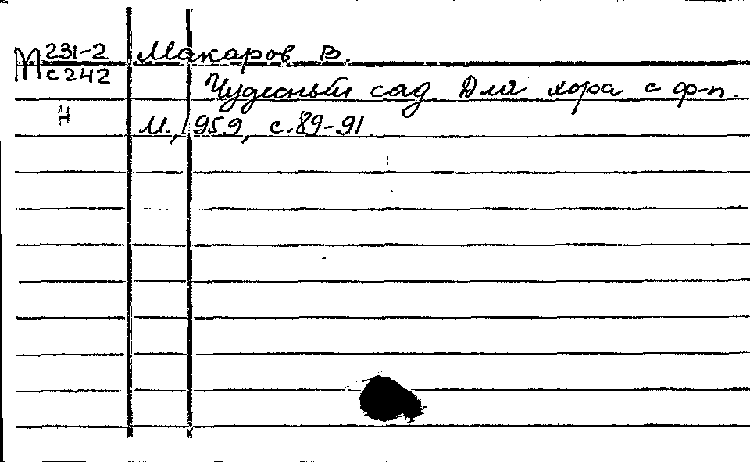 М 231-2 Макаров В.
с 242 Чудесный сад Для хора с ф-п.
Н М., 1959, с. 89-91